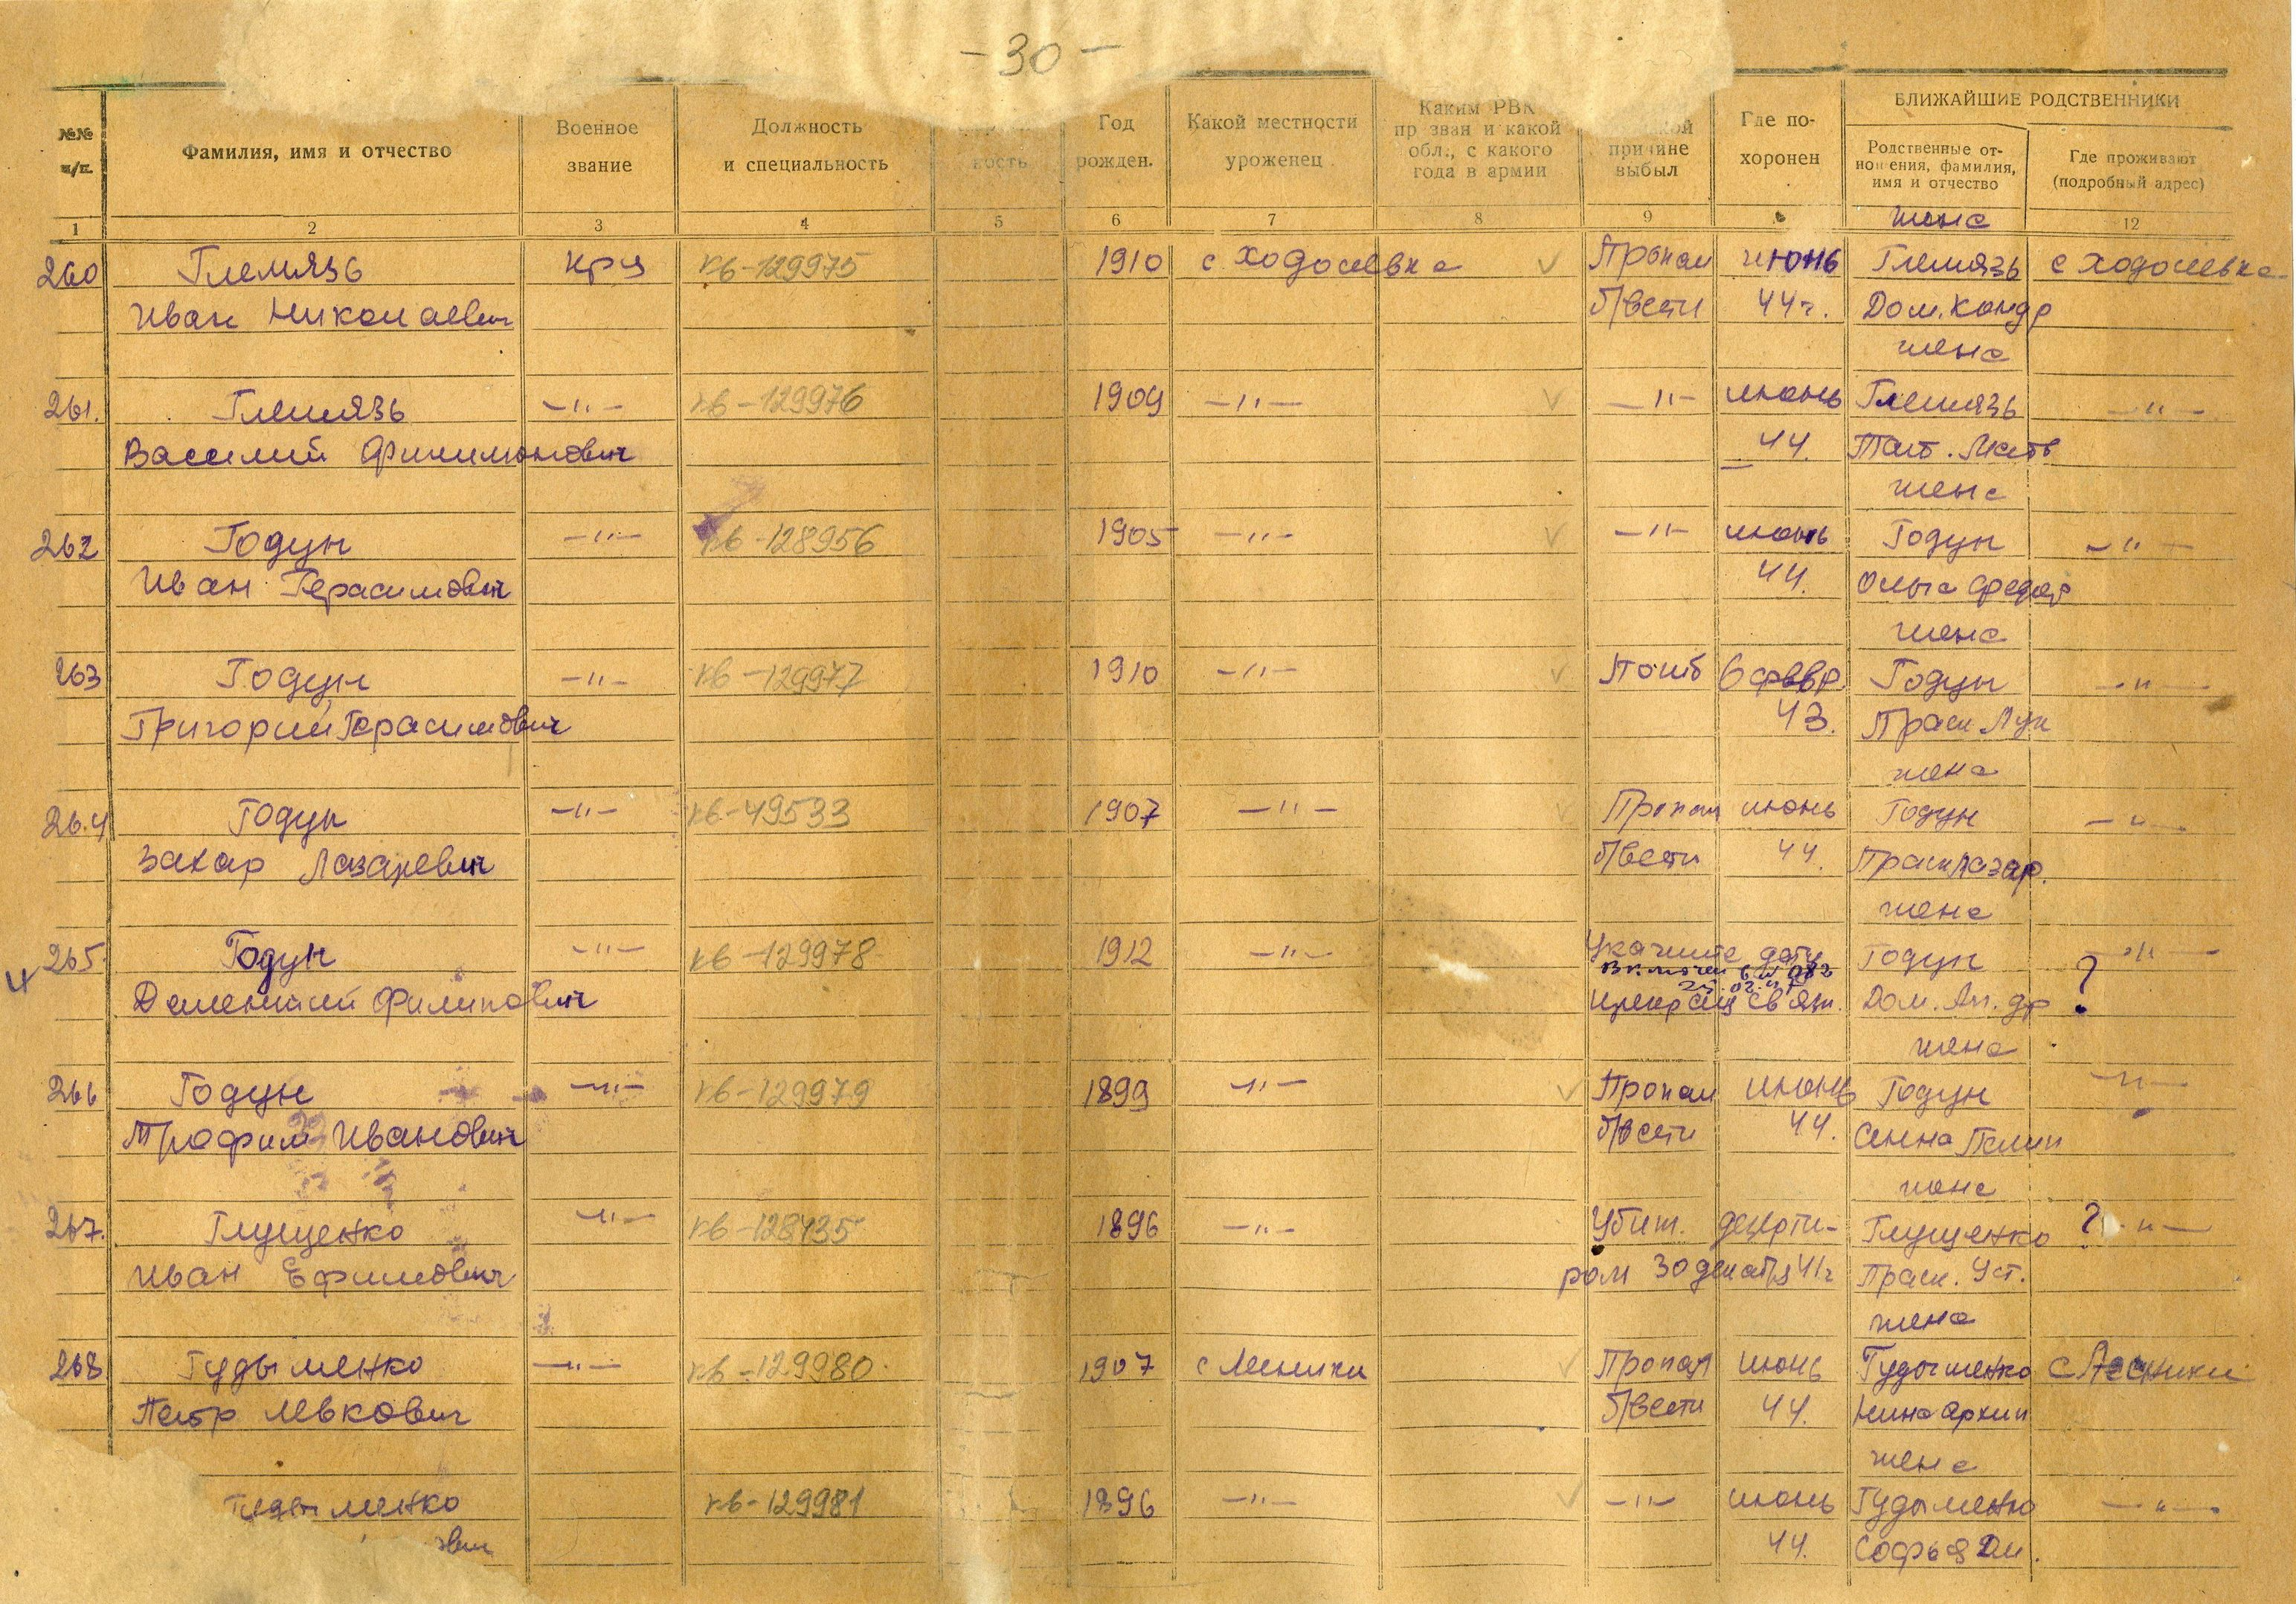 - 30 -
№№ п/п.
Фамилия, имя и отчество
Военное звание
Должность и специальность
ность
Год рожден.
Какой местности уроженец
Каким РВК призван и какой обл., с какого года в армии
причине выбыл
Где похоронен
БЛИЖАЙШИЕ РОДСТВЕННИКИ
Родственные отношения, фамилия, имя и отчество
Где проживают (подробный адрес)
1 2 3 4 5 6 7 8 9 12
жена
260 Глемязь кр-ц кв-129975 1910 с Ходосевка Пропал июнь Глемязь с Ходосевка
Иван Николаевич б/вести 44 г. Дом. Кондр
жена
261. Глемязь —"— кв-129976 1909 —"— —"— июнь Глемязь —"—
Василий Филимонович 44. Тат. Матв
жена
262 Годун —"— кв-128956 1905 —"— —"— июнь Годун —"—
Иван Герасимович 44. Ольга Федор
жена
263 Годун —"— кв-129977 1910 —"— Погиб в февр. Годун —"—
Григорий Герасимович 43. Праск Лук
жена
264 Годун —"— кв-49533 1907 —"— Пропал июнь Годун —"—
Захар Лазаревич б/вести 44. Праск Лазар.
жена
265. Годун —"— кв-129978 1912 —"— Укажите дату Годун —"—
Дементий Филипович прекращ связи. Дом. Ан. др ?
жена
266 Годун —"— кв-129979 1899 —"— Пропал июнь Годун —"—
Трофим Иванович б/вести 44.
жена
267. Глущенко —"— кв-128435 1896 —"— Убит. дезерти- Глущенко ? —"—
Иван Ефимович ром 30 декабря 41 г Праск. Уст.
жена
268 Гудыменко —"— кв-129980 1907 с Лесники Пропал июнь Гудыменко с Лесники
Петр Левкович б/вести 44. Нина Архип
жена
Гудыменко кв-129981 1896 —"— —"— июнь Гудыменко —"—
вич 44. Софья Дм.